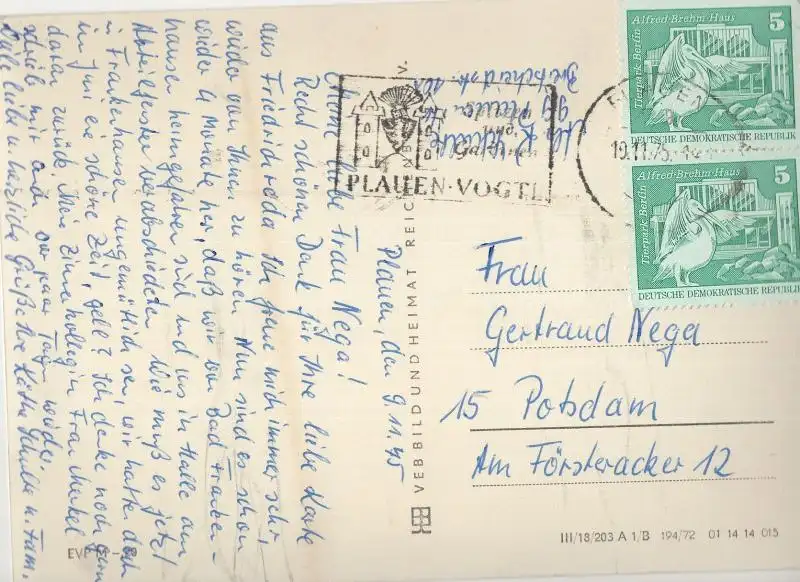 Plauen, den 9.11.75
Meine liebe Frau Nega!
Recht schönen Dank für Ihre liebe Karte
aus Friedrichroda. Ich freue mich immer sehr,
wieder von Ihnen zu hören. Nun sind es schon
wieder 4 Monate her, daß wir von Bad Franken-
hausen heimgefahren sind und uns in Halle am
verabschiedeten. Wie muß es jetzt
in Frankenhausen ungemütlich sein, wir hatten doch
im Juni eine schöne Zeit, gell? Ich denke noch gern
daran zurück. Meine Zimmerkollegin Frau
schrieb mir auch vor paar Tagen wieder.
Viele liebe u. herzliche Grüße Ihre Käthe Schulze u. Fam.
99 Plauen
Breitscheidstr. 101
PLAUEN·VOGTL
PLAUEN
19.11.75
Alfred-Brehm-Haus
5
Tierpark Berlin
DEUTSCHE DEMOKRATISCHE REPUBLIK
Alfred-Brehm-Haus
5
Tierpark Berlin
DEUTSCHE DEMOKRATISCHE REPUBLIK
VEB BILD UND HEIMAT REICHENBACH
Frau
Gertraud Nega
15 Potsdam
Am Försteracker 12
III/18/203 A 1/B 194/72 01 14 14 015
EVP